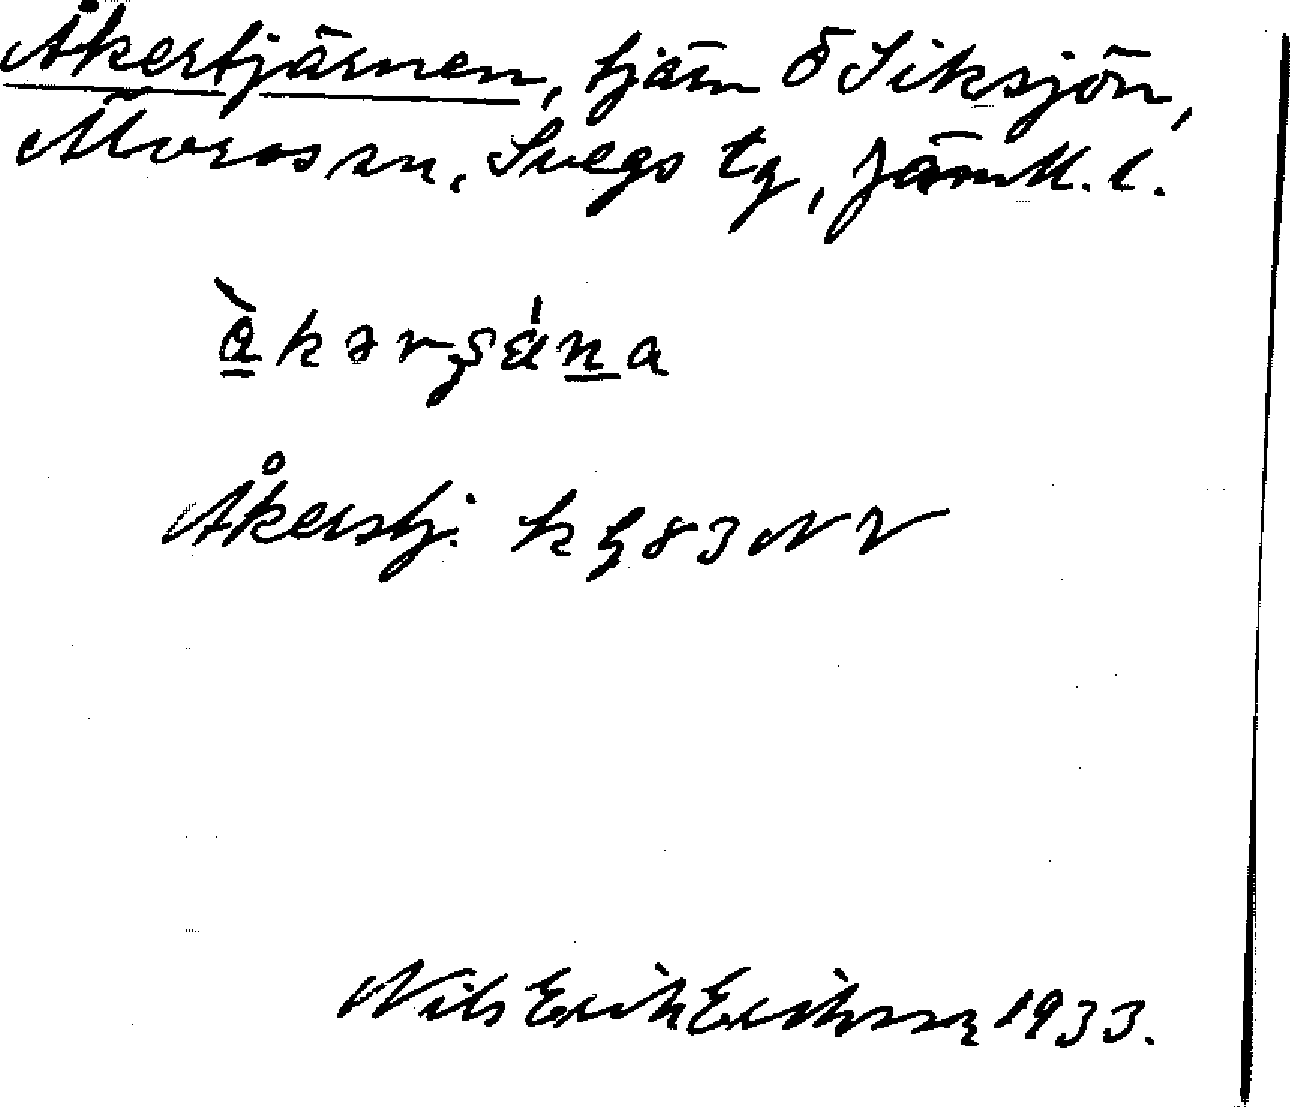 Åkertjärnen, tjärn ö Siksjön,
Älvros sn, Svegs tg, Jämtl. l.
Åkerstj. k g 83 NV
Nils Erik Eriksson 1933.